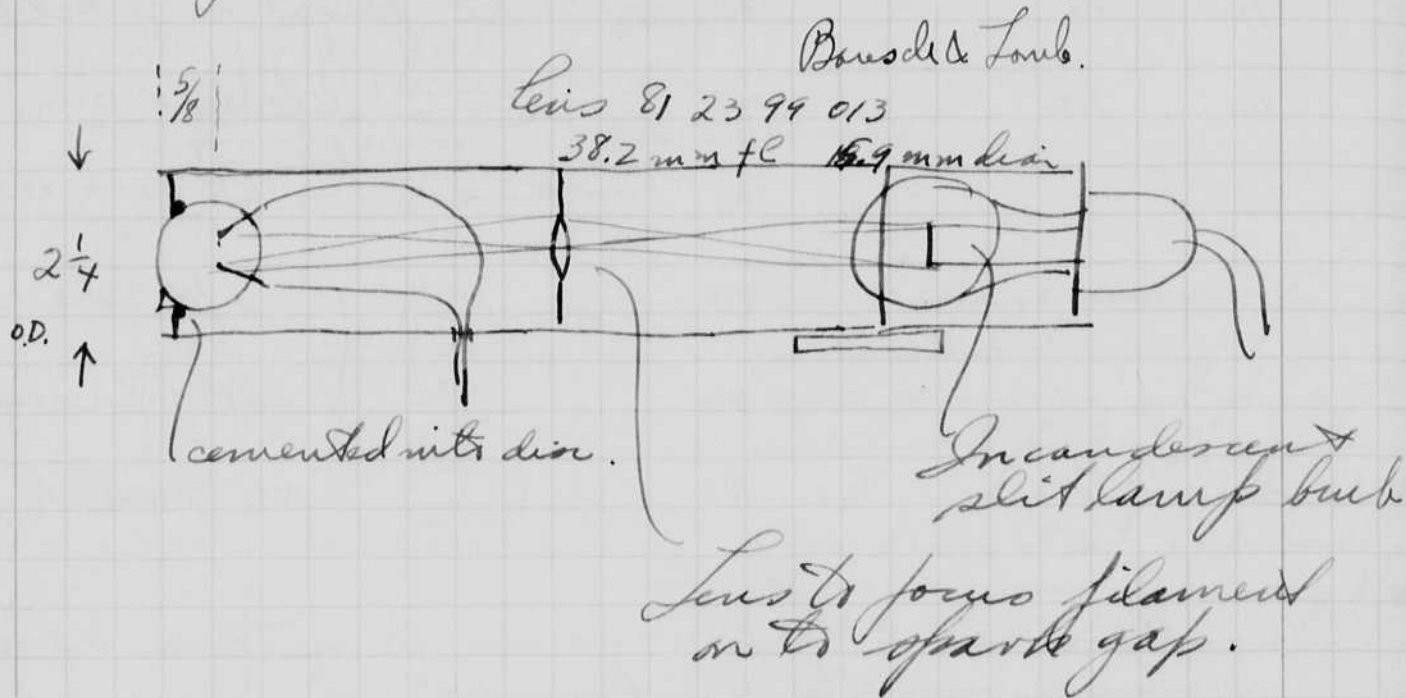 Bausch & Lomb.
5/8
lens 81 23 99 013
38.2 mm fl 15.9 mm diam
2 1/4
O.D.
cemented into disc.
Incandescent
slit lamp bulb
Lens to focus filament
on to spark gap.